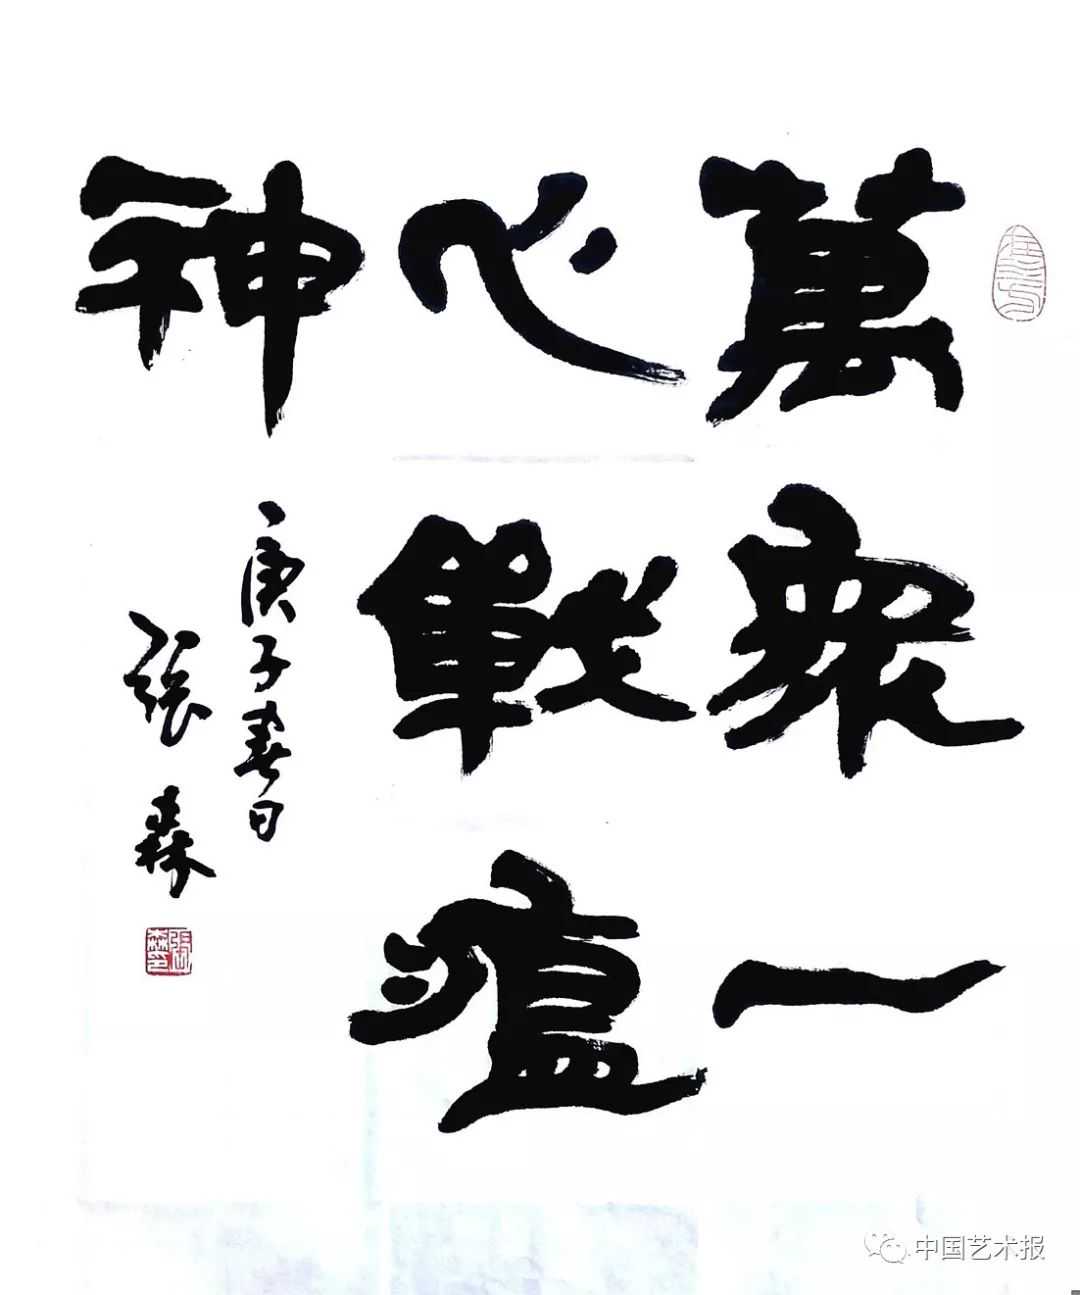 萬衆一
心戰瘟
神
庚子春日
張森
張森印
中国艺术报